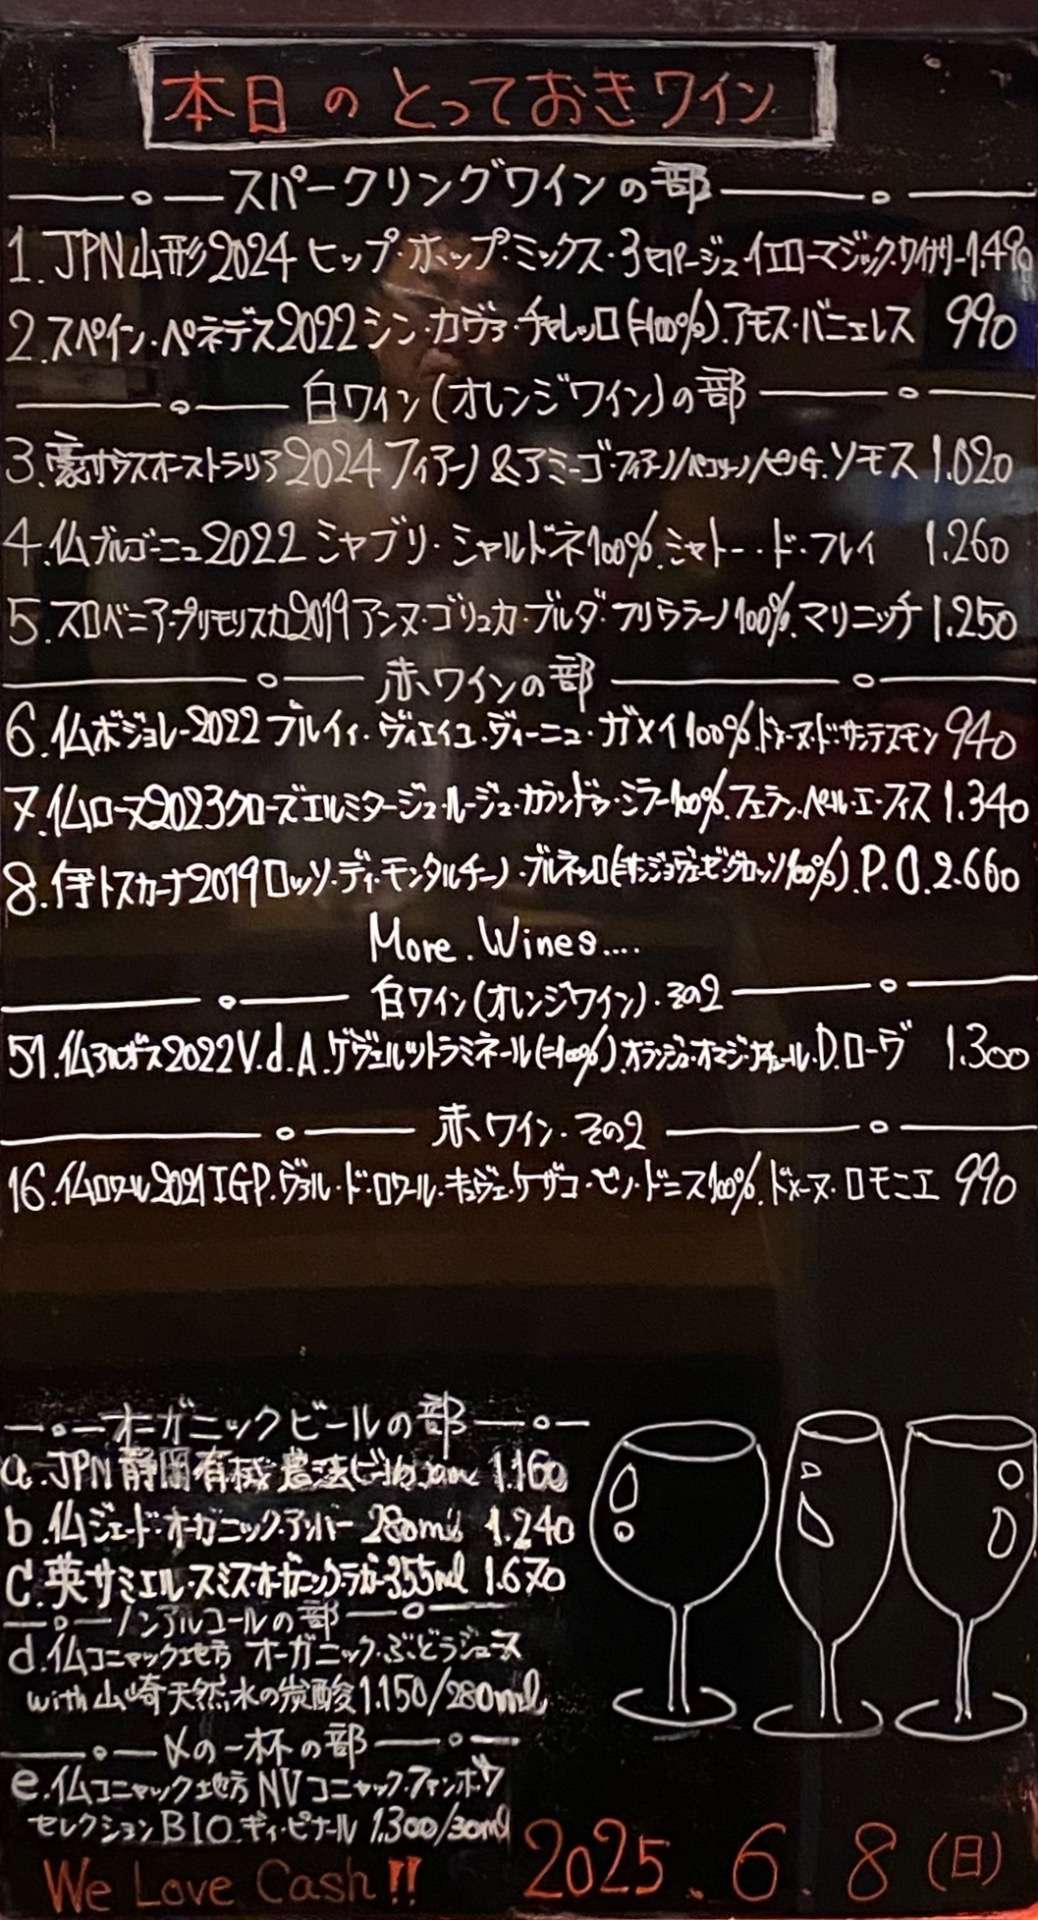 本日のとっておきワイン
スパークリングワインの部
1.JPN山形2024ヒップ・ホップ・ミックス・3セパージュ・イエローマジック・ワイナリー1.490
2.スペイン・ペネデス2022シン・カヴァ・チャレッロ(=100%).アモス・バニェレス 990
白ワイン(オレンジワイン)の部
3.豪サウスオーストラリア2024フィアーノ&アミーゴ・フィアーノ/ペコリーノ/ペルノG.ソモス 1.020
4.仏ブルゴーニュ2022シャブリ・シャルドネ100%.シャトー・ド・フレイ 1.260
5.スロベニア・プリモリスカ2019アンヌ・ゴリュカ・ブルダ・フリウラーノ100%.マリニッチ 1.250
赤ワインの部
6.仏ボジョレー2022ブルイィ・ヴィエイユ・ヴィーニュ・ガメイ100%.ドメーヌ・ド・サンテスモン 940
7.仏ローヌ2023クローズエルミタージュ・ルージュ・カランドゥ・シラー100%.フェラン.ペル・エ・フィス 1.340
8.伊トスカーナ2019ロッソ・ディ・モンタルチーノ・ブルネッロ(=サンジョヴェーゼ・グロッソ100%).P.O.2.660
More.Wines....
白ワイン(オレンジワイン).その2
51.仏アルザス2022V.d.A.ゲヴェルツトラミネール(=100%).オランジュ・オマジ・ナチュール.D.ローヴ 1.300
赤ワイン.その2
16.仏ロワール2021IGP.ヴァル・ド・ロワール・キュヴェ・ケザコ・ピノ・ドニス100%.ドメーヌ・ロモニエ 990
オーガニックビールの部
a.JPN静岡有機農法ビール 1.160
b.仏ジェード・オーガニック・アンバー 280ml 1.240
c.英サミエル・スミス・オーガニック・ラガー355ml 1.670
ノンアルコールの部
d.仏コニャック地方 オーガニック・ぶどうジュース
with山崎天然水の炭酸1.150/280ml
〆の一杯の部
e.仏コニャック地方NVコニャック・ファンボワ
セレクションBIO.ギィ・ピナール 1.300/30ml
We Love Cash!! 2025.6.8(日)